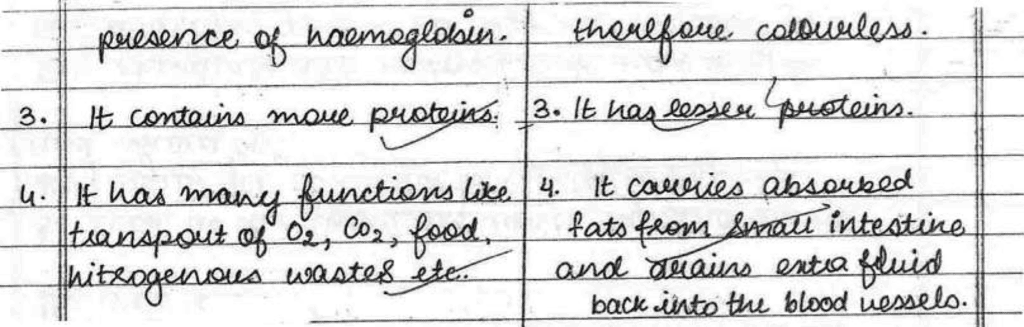 presence of haemoglobin.
3. It contains more proteins.
4. It has many functions like
transport of O2, CO2, food,
nitrogenous wastes etc.
therefore colourless.
3. It has lesser proteins.
4. It carries absorbed
fats from small intestine
and drains extra fluid
back into the blood vessels.